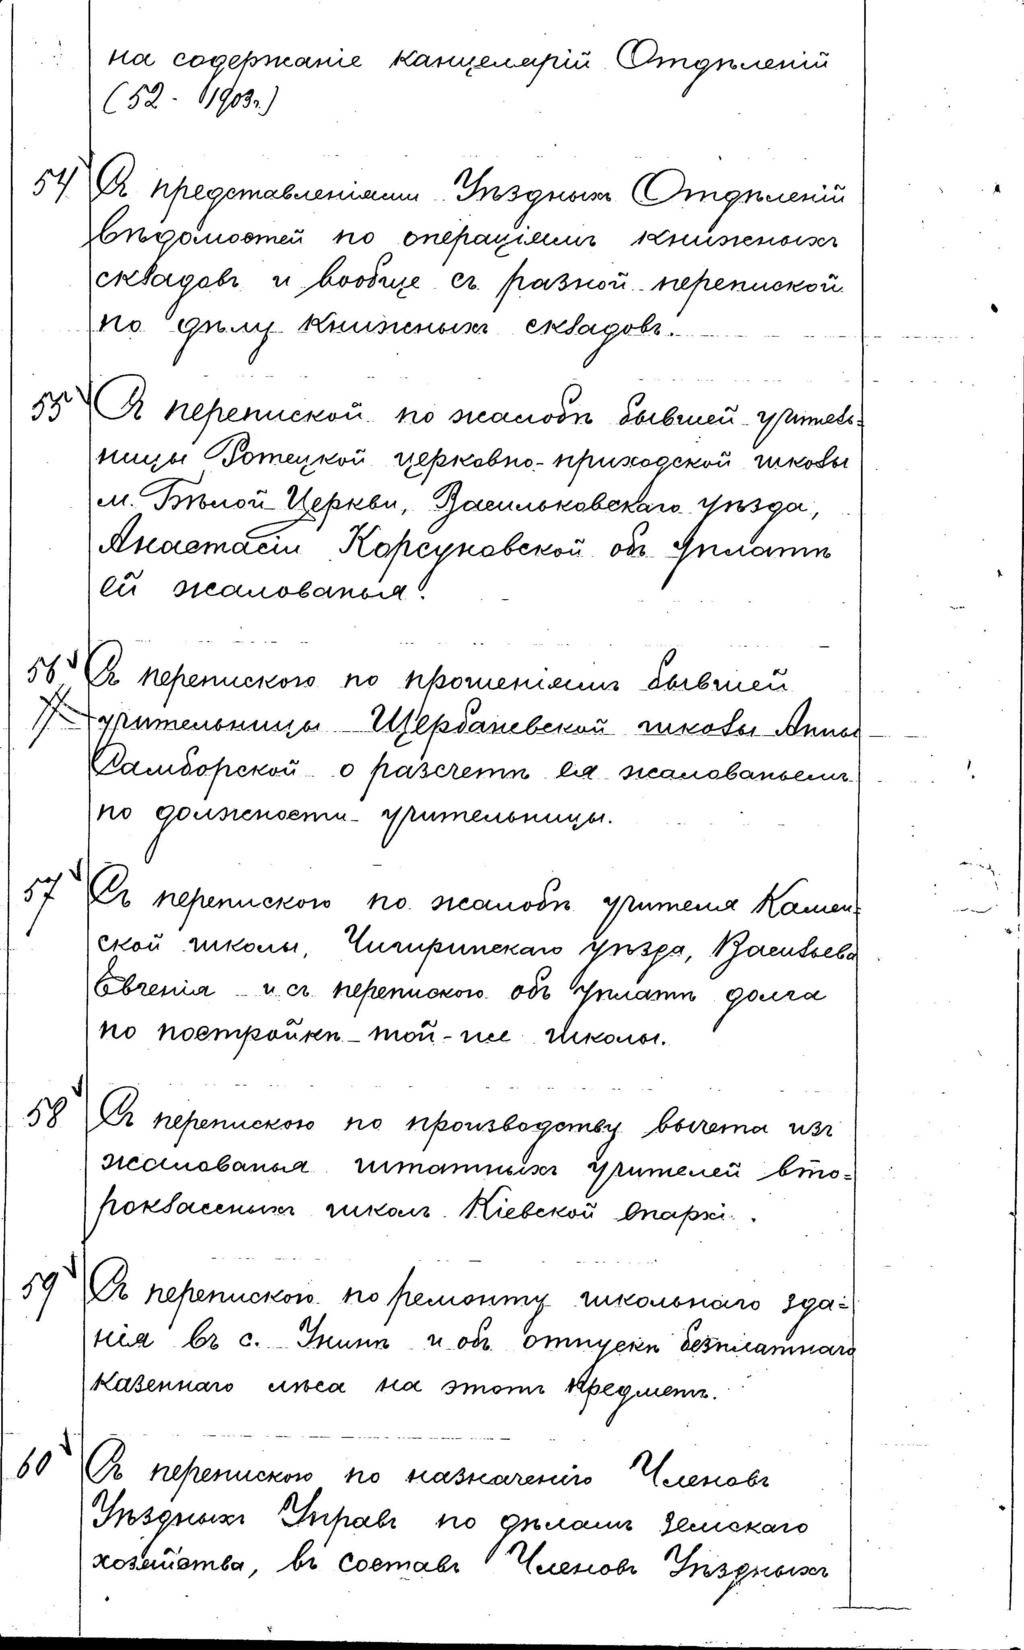 на содержаніе канцелярій Отдѣленій
(52 - 1903г.)
54 Съ представленіями Уѣздныхъ Отдѣленій
вѣдомостей по операціямъ книжныхъ
складовъ и вообще съ разной перепиской
по дѣлу книжныхъ складовъ.
55 Съ перепиской по жалобѣ бывшей учитель-
ницы Ротецкой церковно-приходской школы
м. Бѣлой Церкви, Васильковскаго уѣзда,
Анастасіи Корсуновской объ уплатѣ
ей жалованья.
56 Съ перепискою по прошеніямъ бывшей
учительницы Щербаневской школы Анны
Самборской о разсчетѣ ея жалованьемъ
по должности учительницы.
57 Съ перепискою по жалобѣ учителя Камен-
ской школы, Чигиринскаго уѣзда, Васильева
Евгенія и съ перепискою объ уплатѣ долга
по постройкѣ той-же школы.
58 Съ перепискою по производству вычета изъ
жалованья штатныхъ учителей вто-
роклассныхъ школъ Кіевской Епархі.
59 Съ перепискою по ремонту школьнаго зда-
нія въ с. Унинѣ и объ отпускѣ безплатнаго
казеннаго лѣса на этотъ предметъ.
60 Съ перепискою по назначенію Членовъ
Уѣздныхъ Управъ по дѣламъ земскаго
хозяйства, въ составъ Членовъ Уѣздныхъ